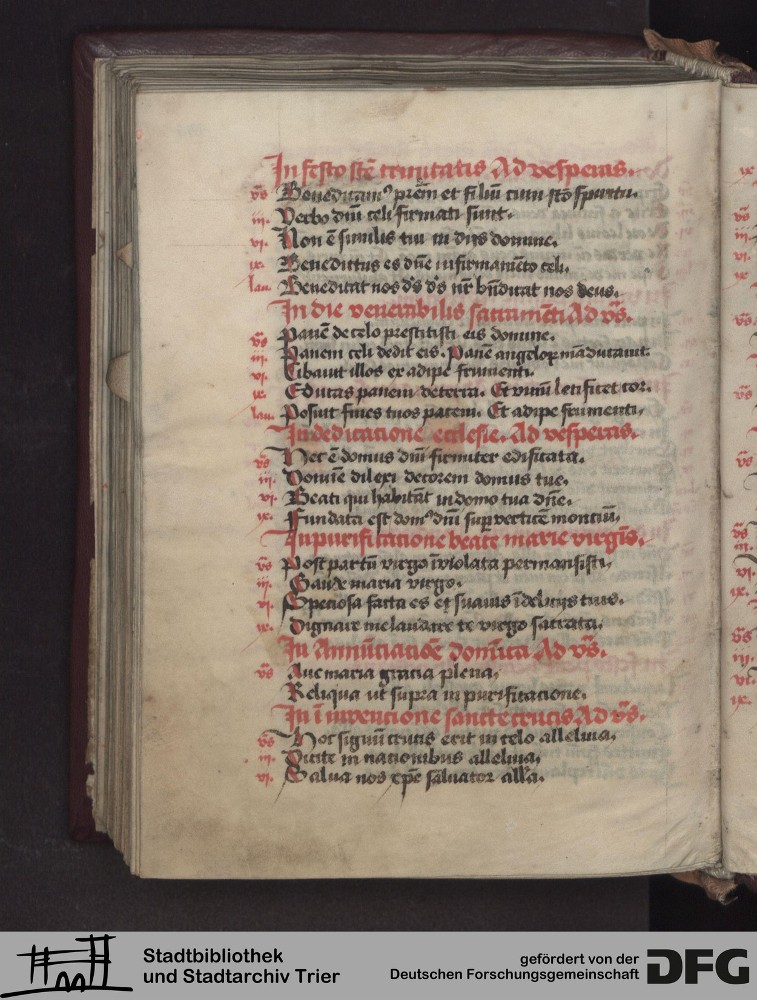 In festo scē trinitatis Ad vesperas.
vs Benedicamꝰ prēm et filiū cum scō spiritu.
iii. Verbo dnī celi firmati sunt.
vi. Non ē similis tui in dijs domine.
ix. Benedictus es dn̄e in firmamēto celi.
lau. Benedicat nos d's d's nr̄ bn̄dicat nos deus.
In die venerabilis sacramēti Ad vs̄.
vs Panē de celo prestitisti eis domine.
iii. Panem celi dedit eis. Panē angeloꝝ māducauit
vi. Cibauit illos ex adipe frumenti.
ix. Educas panem de terra. Et vinū letificet cor.
lau. Posuit fines tuos pacem. Et adipe frumenti.
In dedicacione ecclesie. Ad vesperas.
vs Hec ē domus dnī firmiter edificata.
iii. Domīe dilexi decorem domus tue.
vi. Beati qui habitāt in domo tua dn̄e.
ix. Fundata est domꝰ dnī supͬ verticē montiū.
In purificacione beate marie virgīs.
vs Post partū virgo īviolata permansisti.
iii. Gaude maria virgo.
vi. Speciosa facta es et suauis ī delicijs tuis.
ix. Dignare me laudare te virgo sacrata.
In Annūciacioē domīca Ad vs̄.
vs Aue maria gracia plena.
Reliqua ut supra in purificacione.
In ī invencione sancte crucis Ad vs̄.
vs Hoc signū crucis erit in celo alleluia.
iii. Dicite in nacionibus alleluia.
vi. Salua nos xp̄e saluator all'a.
Stadtbibliothek
und Stadtarchiv Trier
gefördert von der
Deutschen Forschungsgemeinschaft
DFG